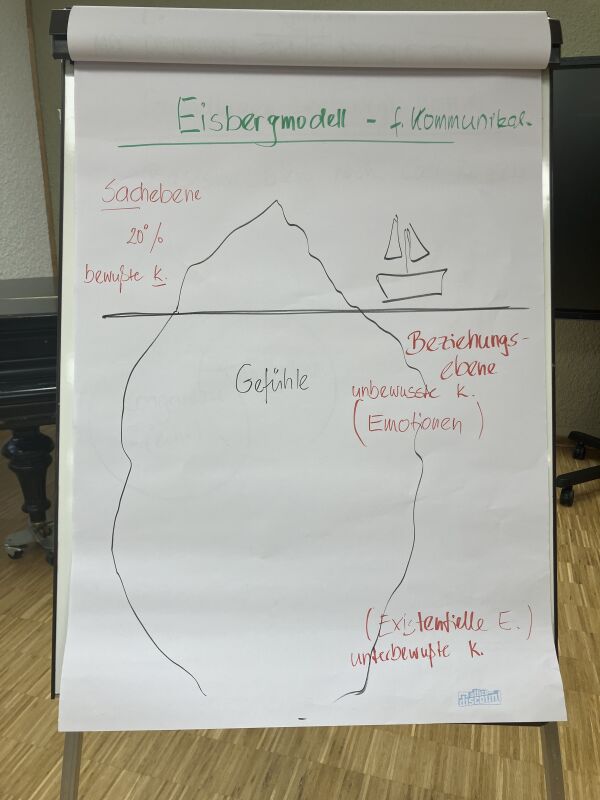 Eisbergmodell - f. Kommunikat.
Sachebene
20%
bewußte K.
Beziehungs-
ebene
Gefühle
unbewusste K.
(Emotionen)
(Existentielle E.)
unterbewußte K.
discount